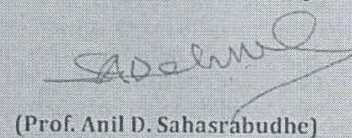 (Prof. Anil D. Sahasrabudhe)